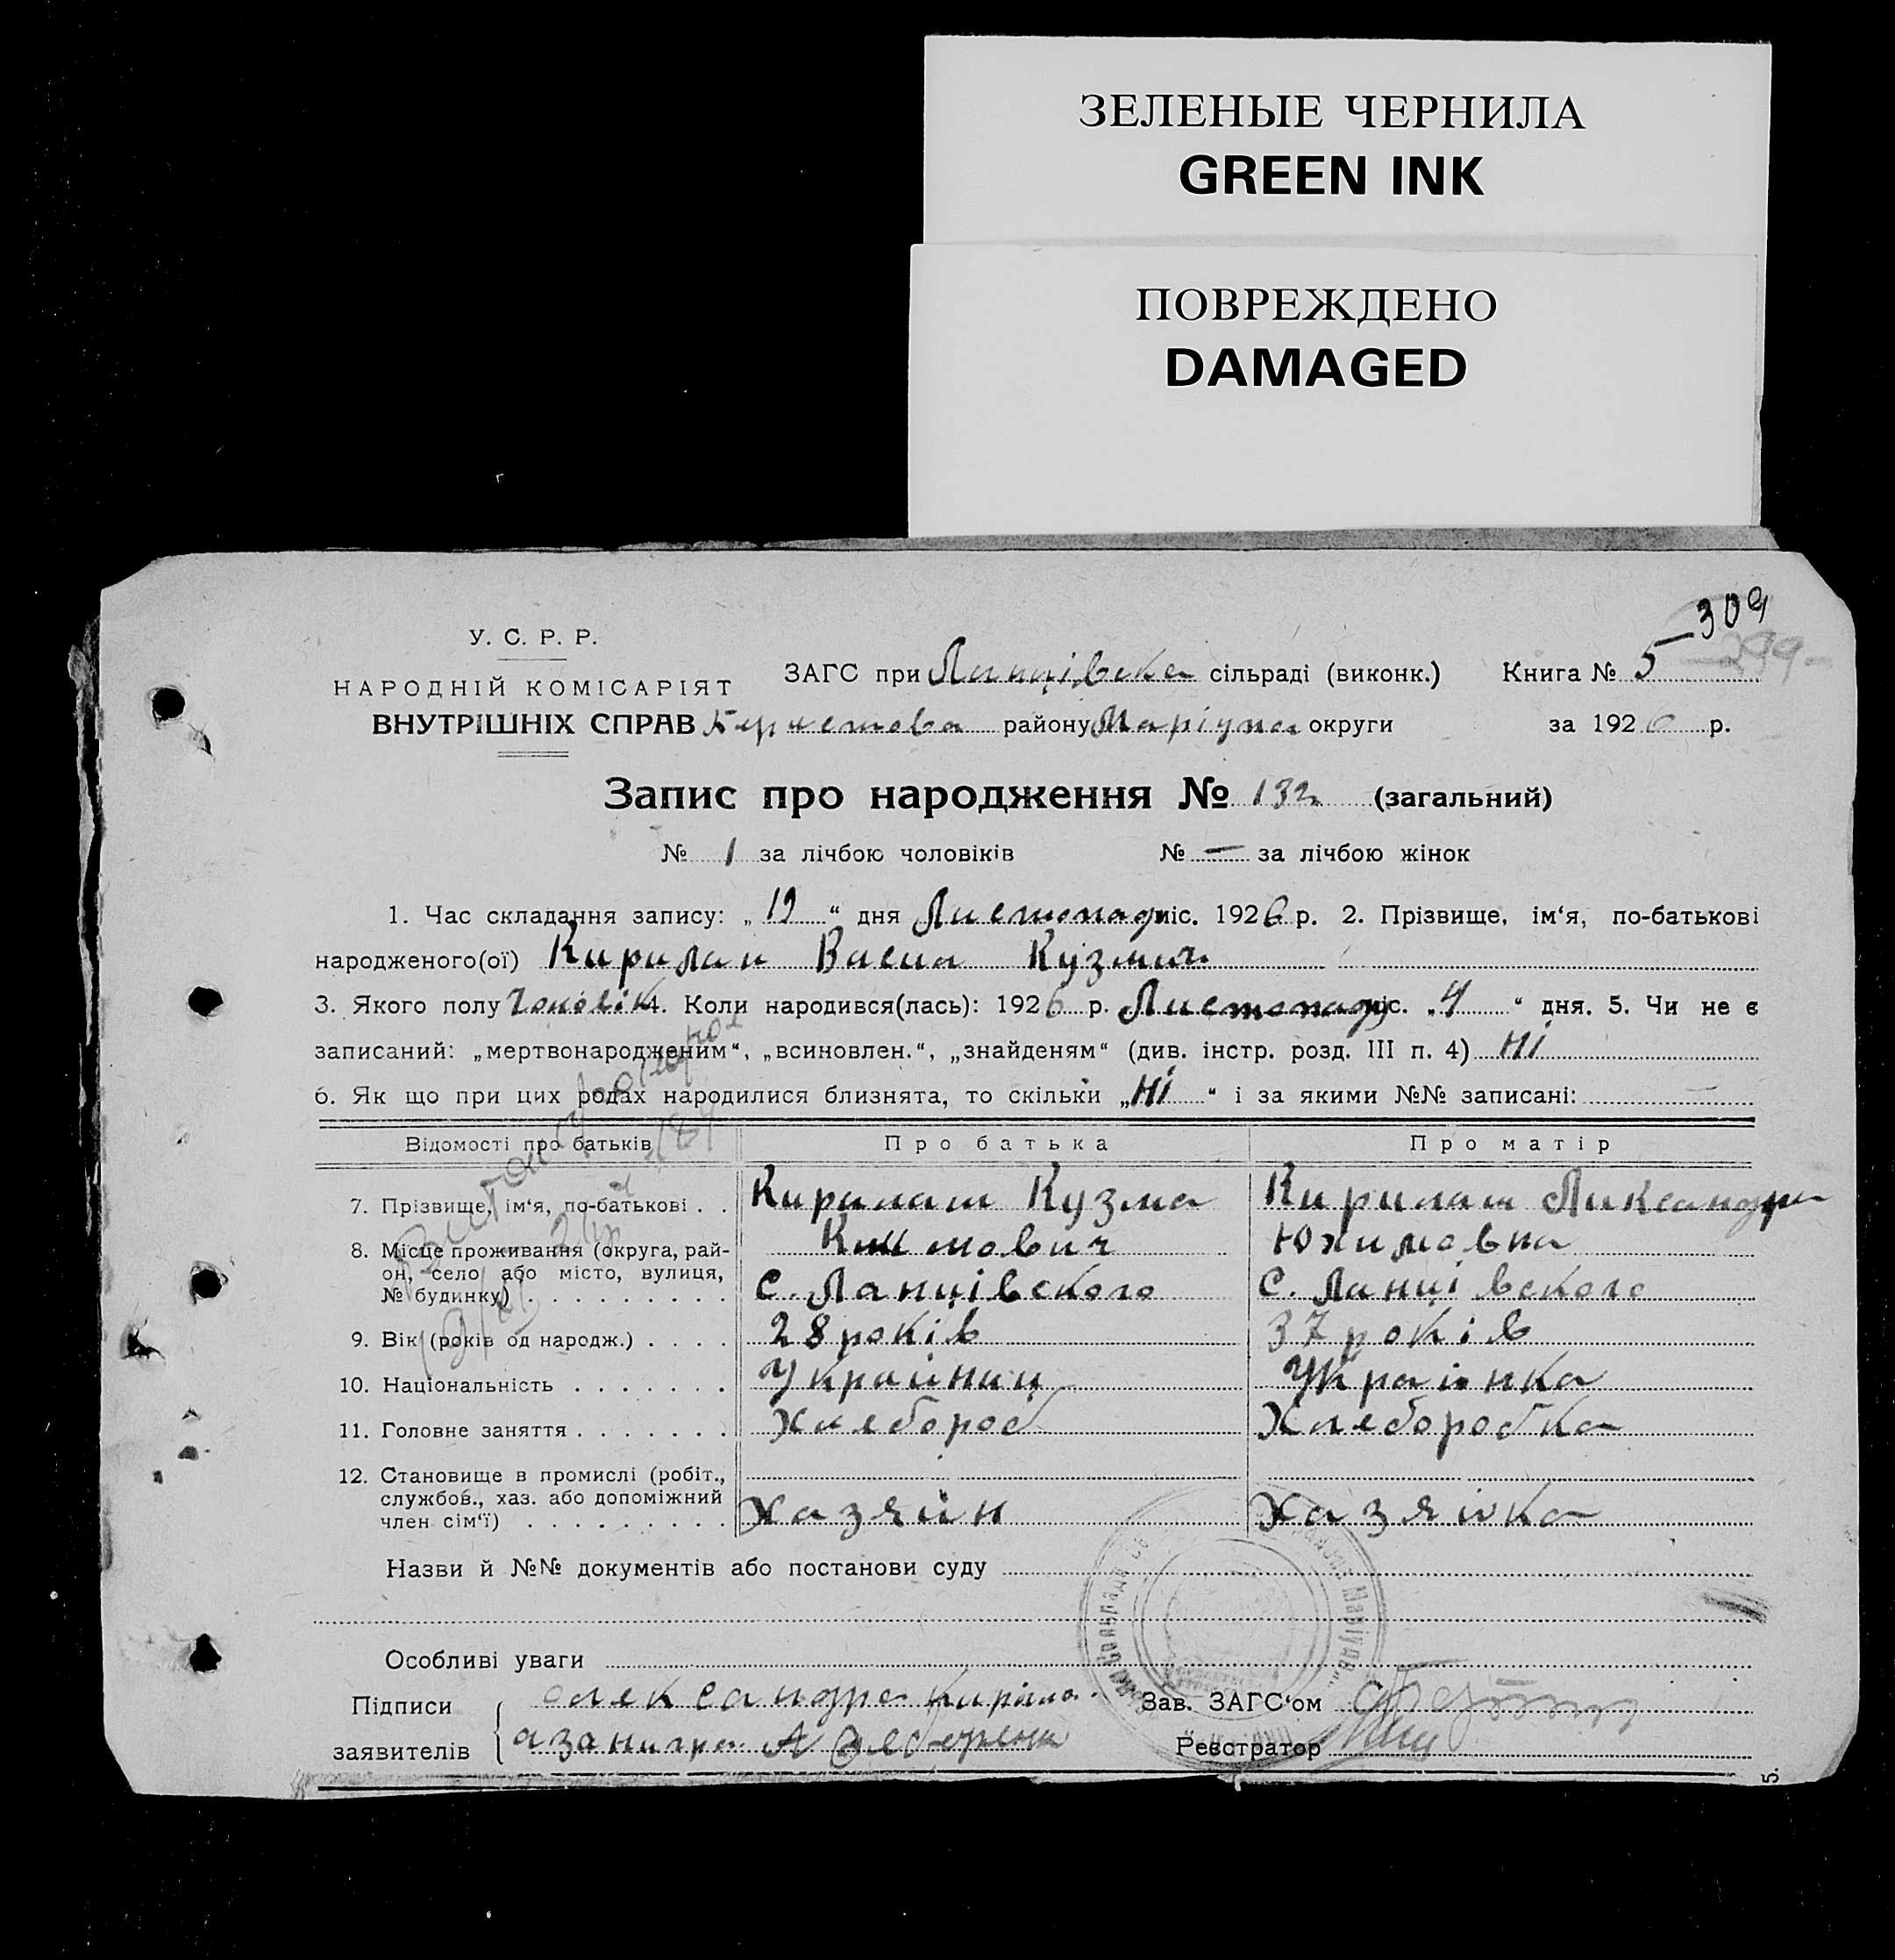 ЗЕЛЕНЫЕ ЧЕРНИЛА
GREEN INK
ПОВРЕЖДЕНО
DAMAGED
309
У. С. Р. Р.
НАРОДНІЙ КОМІСАРІЯТ
ВНУТРІШНІХ СПРАВ
ЗАГС при Ланцівська сільраді (виконк.) Книга № 5
району Маріупа округи за 1926 р.
Запис про народження № 132 (загальний)
№ 1 за лічбою чоловіків № — за лічбою жінок
1. Час складання запису: „19“ дня Листопад міс. 1926 р. 2. Прізвище, ім‘я, по-батькові
народженого(ої) Кирилаш Васил Кузмич
3. Якого полу Чоловік 4. Коли народився(лась): 1926 р. Листопаду міс. „4“ дня. 5. Чи не є
записаний: „мертвонародженим“, „всиновлен.“, „знайденям“ (див. інстр. розд. III п. 4) Ні
6. Як що при цих родах народилися близнята, то скільки „Ні“ і за якими №№ записані: —
Відомості про батьків Про батька Про матір
7. Прізвище, ім‘я, по-батькові . . Кирилаш Кузма Кирилаш Ликсандра
8. Місце проживання (округа, рай- Юхимовна
он, село або місто, вулиця, С. Ланцівского С. Ланцівского
№ будинку) . . . . . . . . .
9. Вік (років од народж.) . . . . 28 років 37 років
10. Національність . . . . . . . Украйниц Украінка
11. Головне заняття . . . . . . . Хлебороб Хлеборобка
12. Становище в промислі (робіт.,
службов., хаз. або допоміжний
член сім‘ї) . . . . . . . . . Хазяйн Хазяйка
Назви й №№ документів або постанови суду
Особливі уваги
Підписи олександра Кирила. Зав. ЗАГС‘ом
заявителів Реєстратор
5.